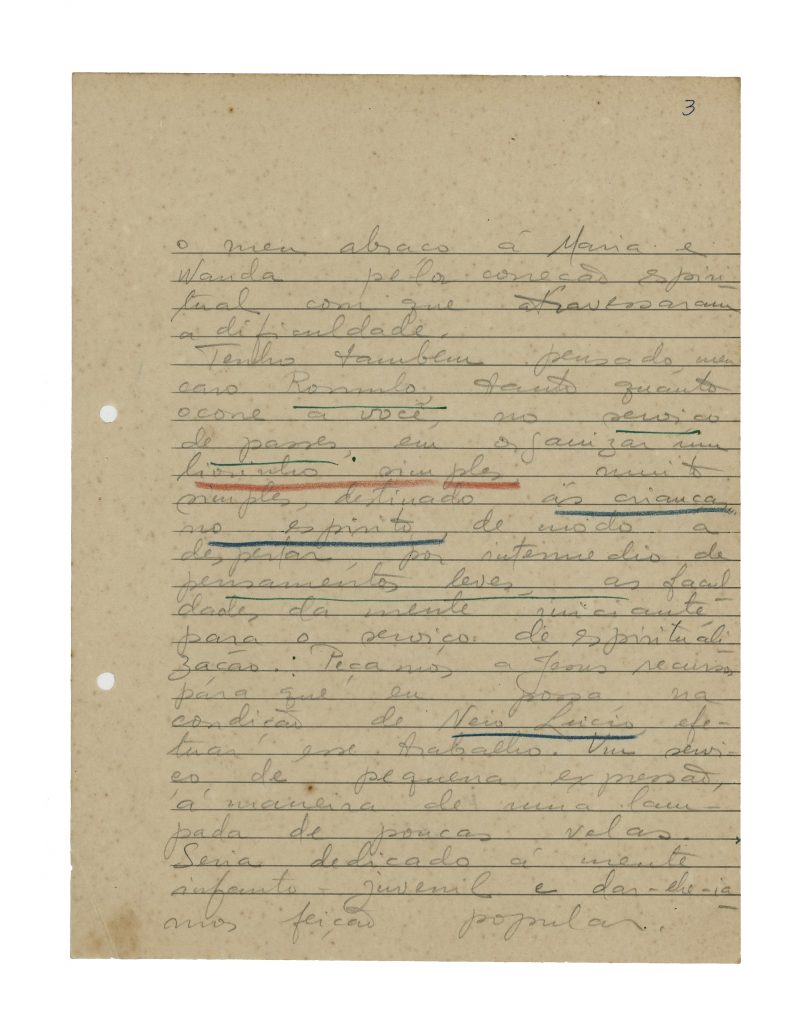 3
o meu abraco á Maria e
Wanda pela correcão espiri
tual com que atravessaram
a dificuldade.
Tenho tambem pensado, meu
caro Romulo, tanto quanto
ocorre a você, no serviço
de passes, em organizar um
livrinho simples muito
simples, destinado ás crianças
no espirito de modo a
despertar, por intermedio de
pensamentos leves, as facul
dades da mente iniciante
para o serviço de espirituali
zação. Peçamos a Jesus recursos
para que eu possa na
condição de Neio Lucio, efe-
tuar esse trabalho. Um servi-
ço de pequena expressão,
á maneira de uma lam-
pada de poucas velas.
Seria dedicado á mente
infanto-juvenil e dar-lhe-ia
mos feição popular.